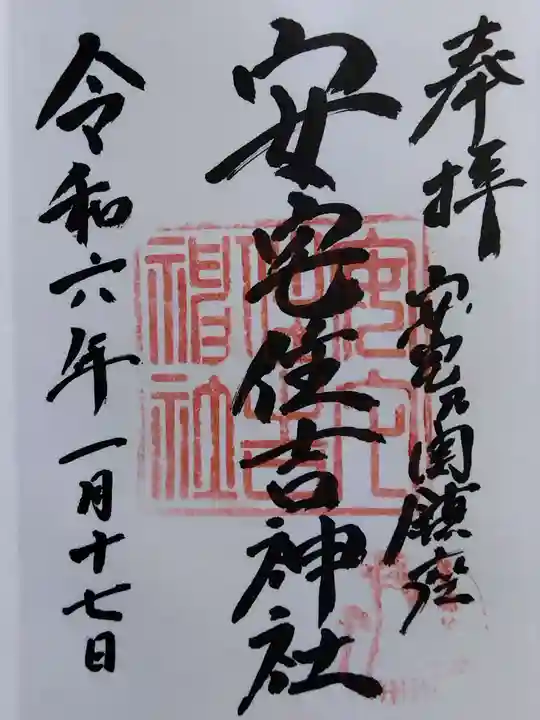 奉拝
安宅乃関鎮座
安宅住吉神社
令和六年一月十七日
安宅住吉神社